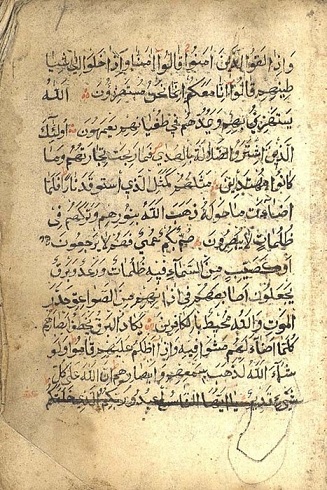 واذا لقوا الذين امنوا قالوا امنا واذا خلوا الى شيا
طينهم قالوا انا معكم انما نحن مستهزؤن الله
يستهزئ بهم ويمدهم في طغيانهم يعمهون اولئك
الذين اشتروا الضلالة بالهدى فما ربحت تجارتهم وما
كانوا مهتدين مثلهم كمثل الذي استوقد نارا فلما
اضاءت ما حوله ذهب الله بنورهم وتركهم في
ظلمات لا يبصرون صم بكم عمي فهم لا يرجعون
او كصيب من السماء فيه ظلمات ورعد وبرق
يجعلون اصابعهم في اذانهم من الصواعق حذر
الموت والله محيط بالكافرين يكاد البرق يخطف ابصارهم
كلما اضاء لهم مشوا فيه واذا اظلم عليهم قاموا ولو
شاء الله لذهب بسمعهم وابصارهم ان الله على كل
شيء قدير يا ايها الناس اعبدوا ربكم الذي خلقكم